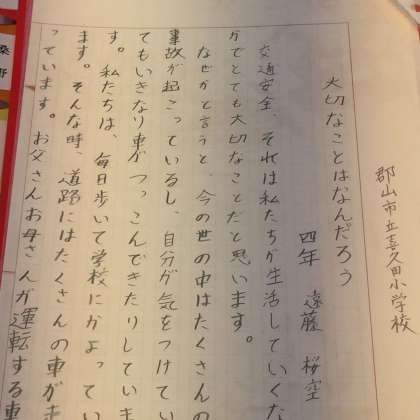 郡山市立喜久田小学校
大切なことはなんだろう
四年 遠藤 桜空
交通安全、それは私たちが生活していくな
かでとても大切なことだと思います。
なぜかと言うと、今の世の中はたくさんの
事故が起こっているし、自分が気をつけてい
てもいきなり車がつっこんできたりしていま
す。私たちは、毎日歩いて学校にかよってい
ます。そんな時、道路にはたくさんの車が走
っています。お父さんお母さんが運転する車
桑野